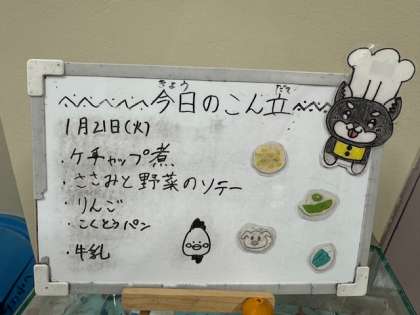 きょう だて
今日のこん立
1月21日(火)
・ケチャップ煮
・ささみと野菜のソテー
・りんご
・こくとうパン
・牛乳